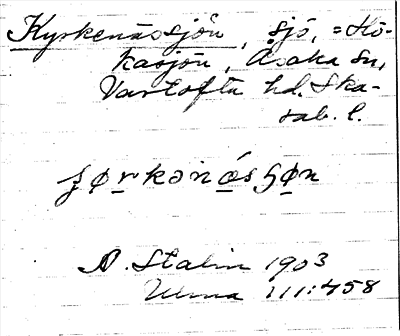 Kyrkenässjön, sjö, = Hö-
kasjön, Åsaka sn,
Vartofta hd. Ska-
rab. l.
ʒørkənás ɧøn
A. Stalin 1903
Ulma 111:458